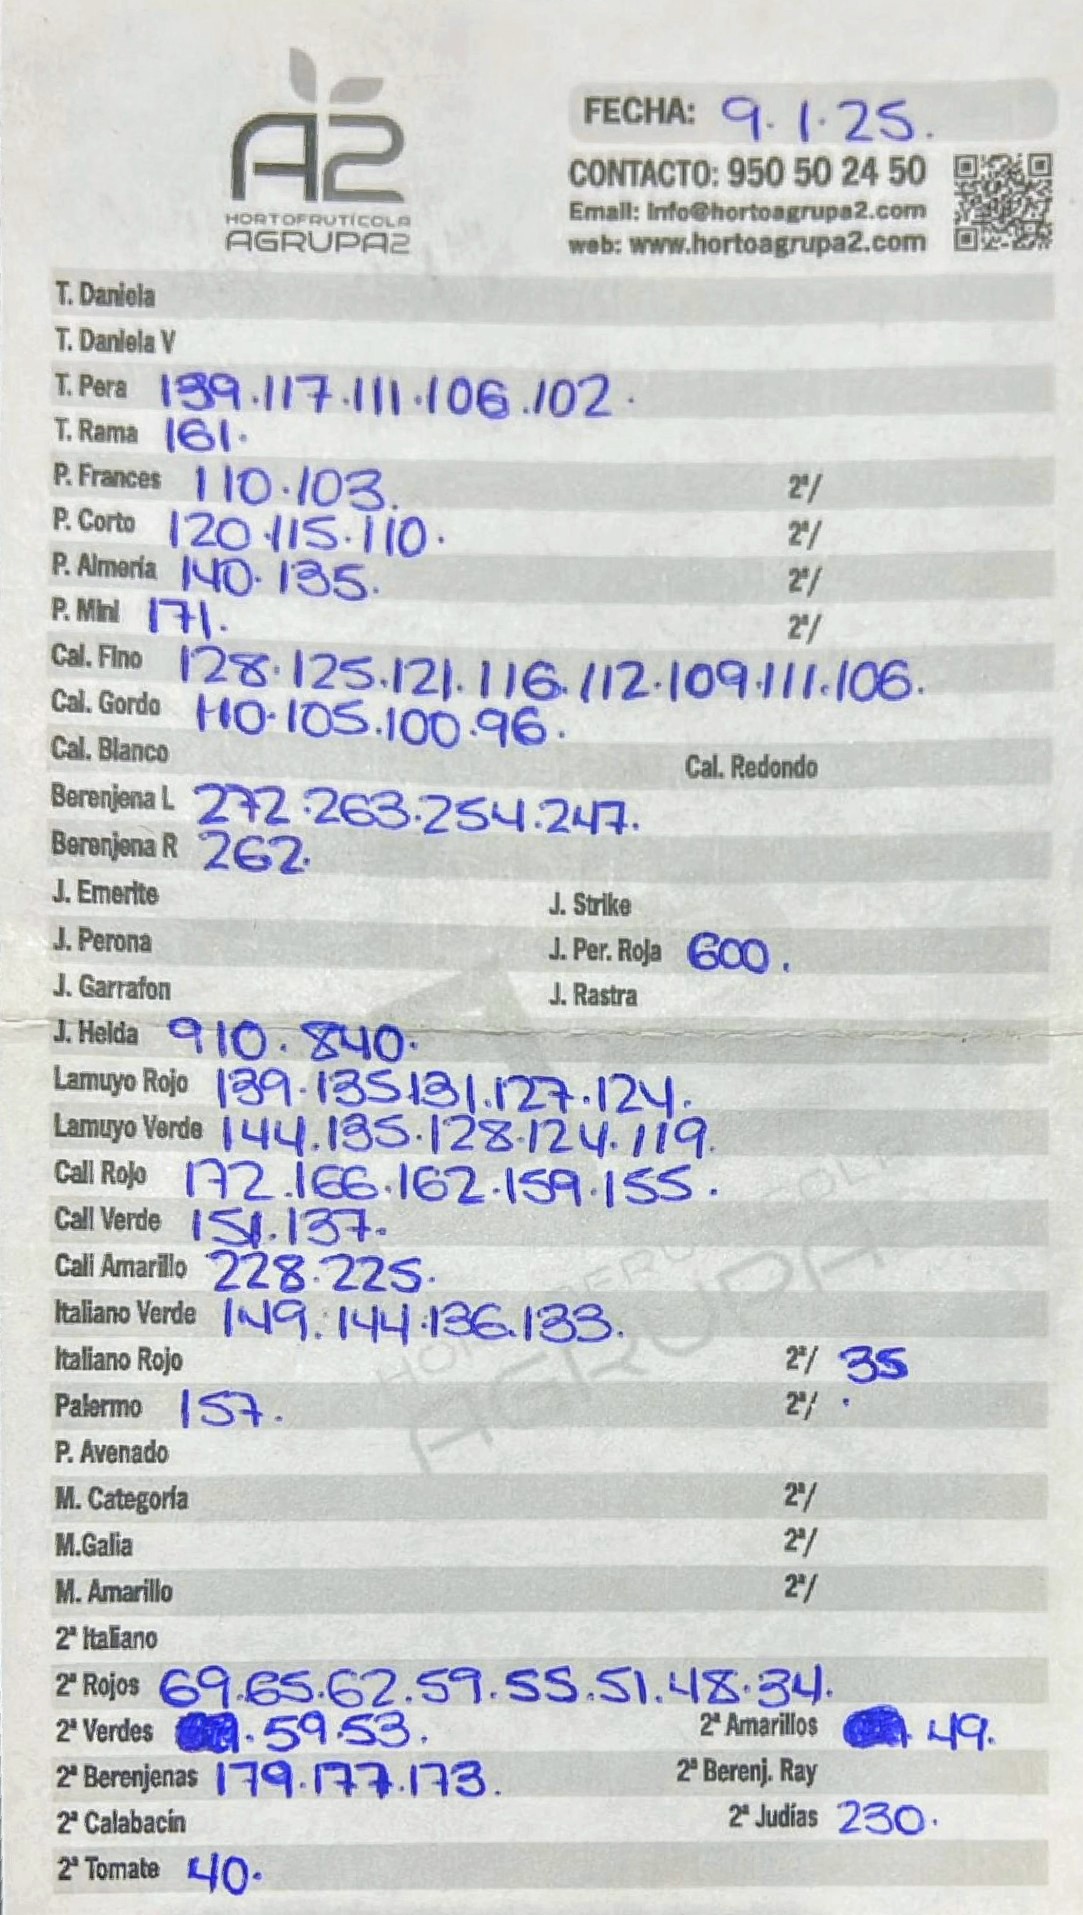 A2
HORTOFRUTÍCOLA
AGRUPA2
FECHA: 9.1.25.
CONTACTO: 950 50 24 50
Email: info@hortoagrupa2.com
web: www.hortoagrupa2.com
T. Daniela
T. Daniela V
T. Pera 139.117.111.106.102.
T. Rama 161.
P. Frances 110.103. 2ª/
P. Corto 120.115.110. 2ª/
P. Almería 140.135. 2ª/
P. Mini 171. 2ª/
Cal. Fino 128.125.121.116.112.109.111.106.
Cal. Gordo 110.105.100.96.
Cal. Blanco Cal. Redondo
Berenjena L 272.263.254.247.
Berenjena R 262.
J. Emerite J. Strike
J. Perona J. Per. Roja 600.
J. Garrafon J. Rastra
J. Helda 910.840.
Lamuyo Rojo 139.135.131.127.124.
Lamuyo Verde 144.135.128.124.119.
Cali Rojo 172.166.162.159.155.
Cali Verde 151.137.
Cali Amarillo 228.225.
Italiano Verde 149.144.136.133.
Italiano Rojo 2ª/ 35
Palermo 157. 2ª/ .
P. Avenado
M. Categoría 2ª/
M.Galia 2ª/
M. Amarillo 2ª/
2ª Italiano
2ª Rojos 69.65.62.59.55.51.48.34.
2ª Verdes . 59.53. 2ª Amarillos . 49.
2ª Berenjenas 179.177.173. 2ª Berenj. Ray
2ª Calabacín 2ª Judías 230.
2ª Tomate 40.